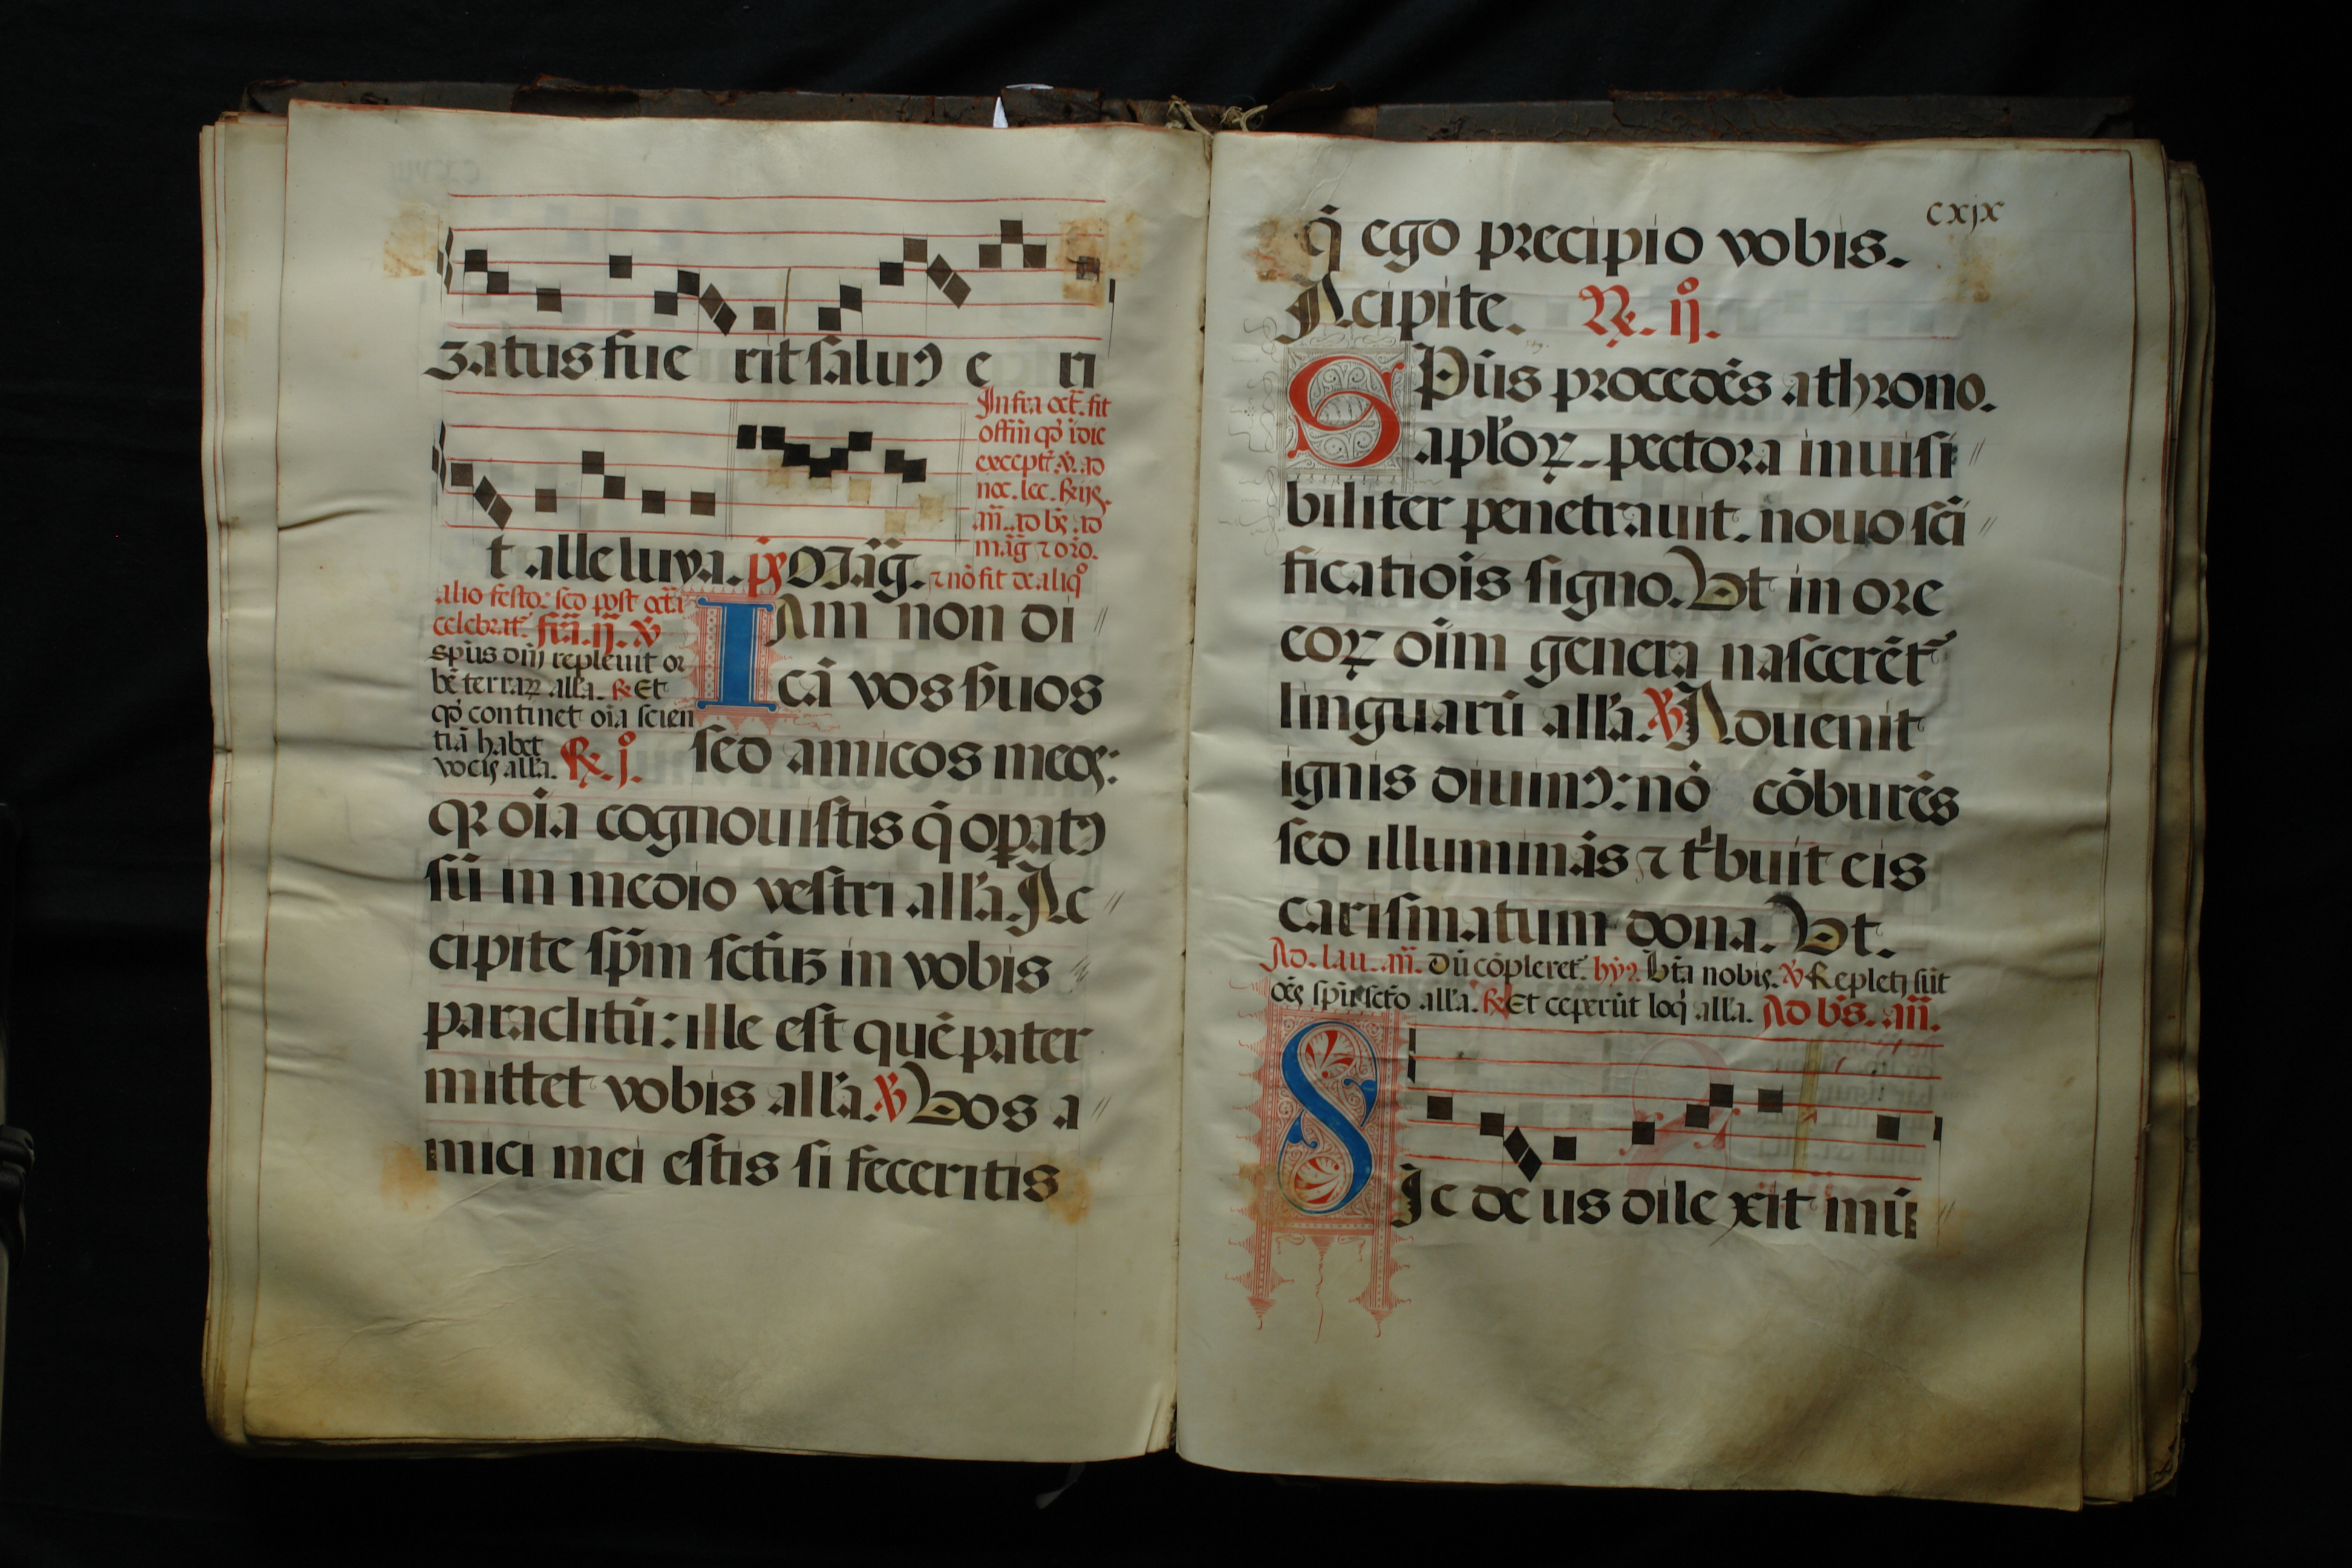 zatus fue rit saluꝰ e ri
t alleluya. p̄s Mag̅.
Infra oct̄. fit
offm̄ qđ ī die
except̄. v̄. ad
noc. lec. ꝶijs.
an̄. ad bn̄s. ad
mag̅ ⁊ oro.
⁊ nō fit de aliqͦ
alio festo: sed post octā
celebrat̄. fr̄a. ij. ℣
spūs dnī repleuit or
bē terraꝝ all'a. ꝶ Et
qđ continet oīa scien
tiā habet
vocis all'a. ꝶ. jͦ.
IAm non di
cā vos s̄uos
sed amicos meos:
qꝛ oīa cognouistis q̄ oꝑatꝰ
sū in medio vestri all'a. Ac
cipite sp̄m sctūꝫ in vobis
paraclitū: ille est quē pater
mittet vobis all'a. ℣ Vos a
mici mei estis si feceritis
cxjx
q̄ ego precipio vobis.
Acipite. ꝶ. ijͦ.
SPūs procedēs a throno.
apl'oꝝ pectora inuisi
biliter penetrauit. nouo scī
ficatiōis signo. Vt in ore
eoꝝ oīm genera nascerēt̄
linguarū all'a. ℣ Aduenit
ignis diuinꝰ: nō cōburēs
sed illuminās ⁊ t'buit eis
carismatum dona. Vt.
Ad. lau. an̄. Dū cōpleret̄. hyꝰ. Bt̄a nobis. ℣ Repleti sūt
oēs spū scto all'a. ꝶ Et ceperūt loqi all'a. Ad bn̄s. an̄.
SIc de us dile xit mū